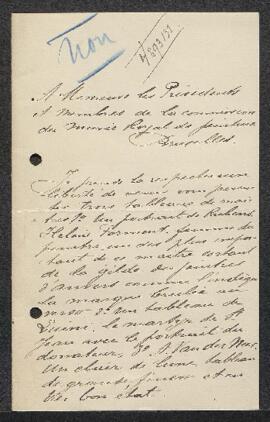 Non
A Messieurs les Présidents
et membres de la commission
du Musée Royal de peinture
Bruxelles.
Je prends la respectueuse
liberté de venir vous proposer
les trois tableaux de maî
tres 1º un portrait de Rubens
Helène Forment, femme du
peintre, un des plus impor
tant de ce maître sortant
de la gilde des peintres
d'anvers comme l'indique
la marque
2º un tableau de
le martyre de St
Jean avec le portrait du
donateur, 3º A. Van der Neer
Un clair de lune, tableau
de grande finesse et en
très bon état.